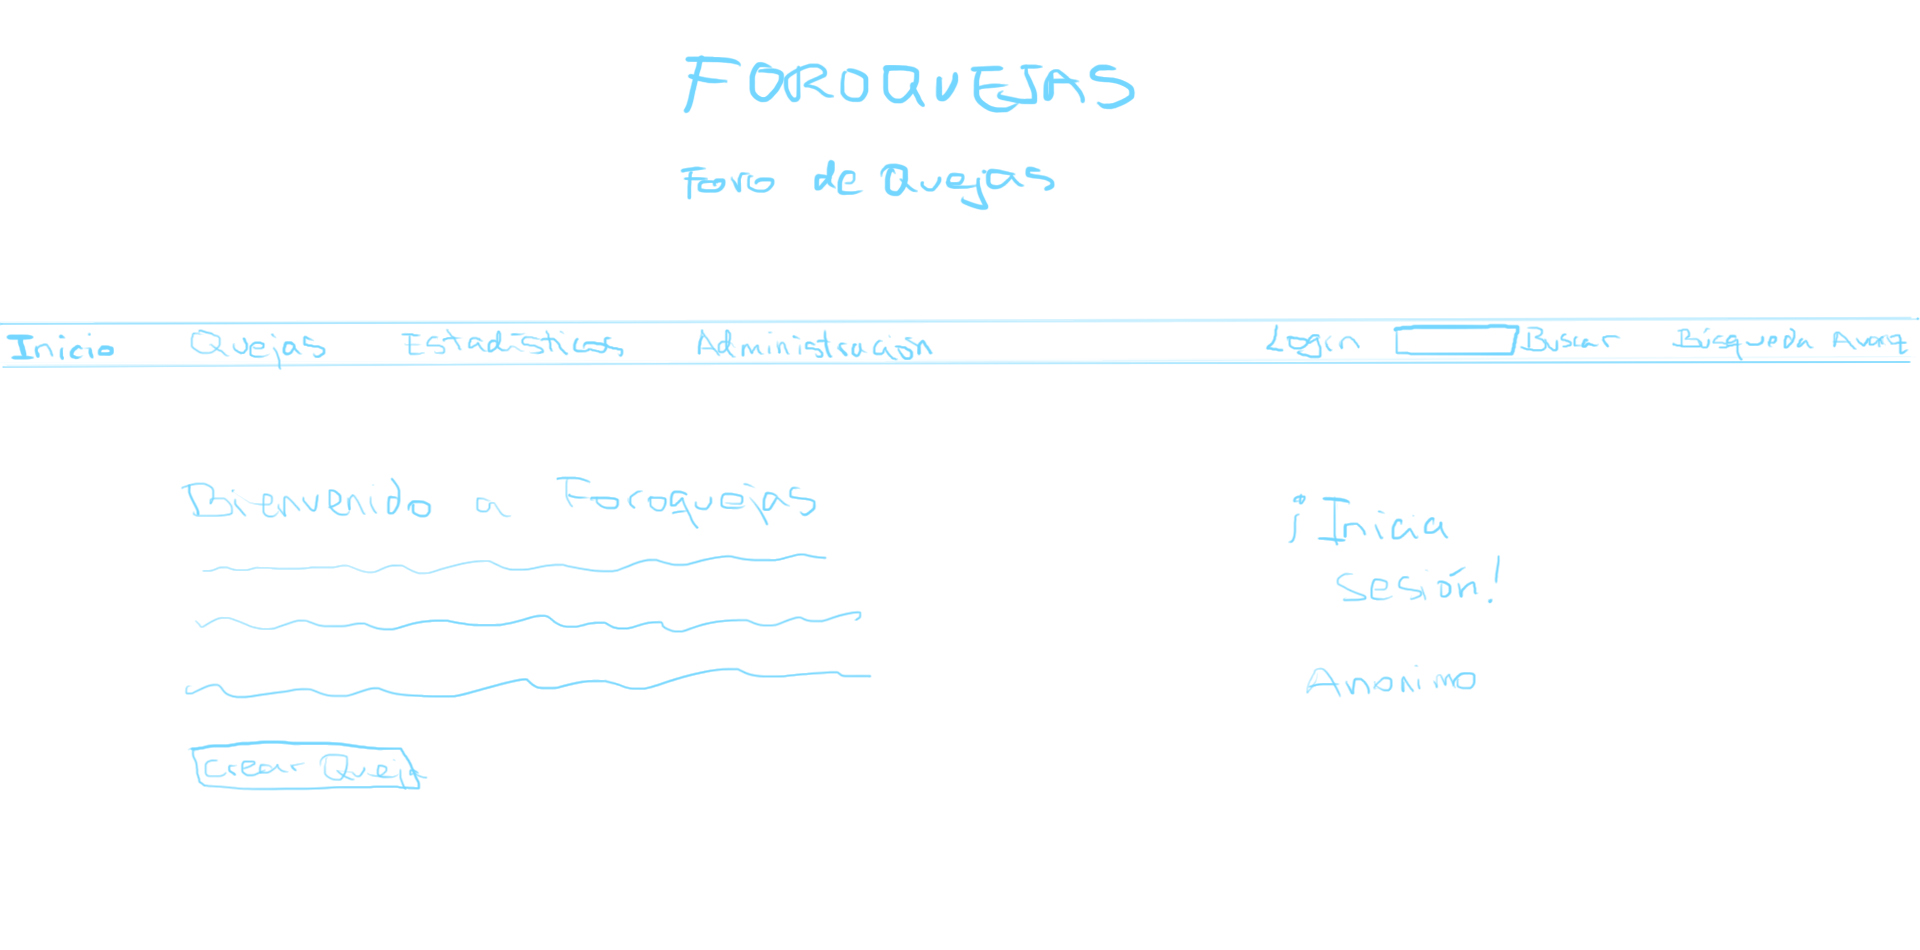 FOROQUEJAS
Foro de Quejas
Inicio Quejas Estadísticas Administración Login Buscar Búsqueda Avanz
Bienvenido a Foroquejas
¡Inicia
sesión!
Anonimo
Crear Queja